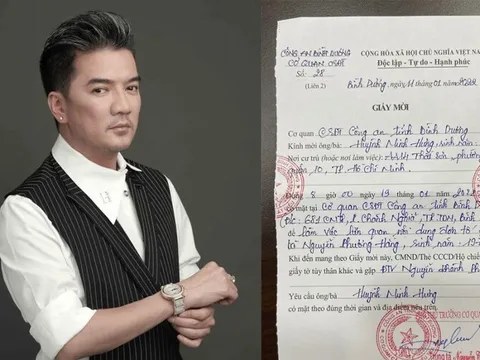 CÔNG AN BÌNH DƯƠNG
CỘNG HÒA XÃ HỘI CHỦ NGHĨA VIỆT NA
CƠ QUAN CSĐT
Độc lập - Tự do - Hạnh phúc
Số: 28
(Liên 2)
Bình Dương, ngày 11 tháng 01 năm 2022
GIẤY MỜI
Cơ quan CSĐT Công an tỉnh Bình Dương
Kính mời ông/bà: Huỳnh Minh Hưng, sinh năm:
Nơi cư trú (hoặc nơi làm việc): phường
quận 10, TP. Hồ Chí Minh.
Đúng 8 giờ 00 ngày 19 tháng 01 năm 2022
có mặt tại Cơ quan CSĐT Công an tỉnh Bình D
Bình
Để làm việc liên quan nội dung đơn tố
bà Nguyễn Phương Hằng, sinh năm: 19
Khi đến mang theo Giấy mời này, CMND/Thẻ CCCD/Hộ chiế
giấy tờ tùy thân khác và gặp: ĐTV Nguyễn Khánh Ph
Yêu cầu ông/bà: Huỳnh Minh Hưng
có mặt theo đúng thời gian và địa điểm nêu trên.
THỦ TRƯỞNG CƠ QUA